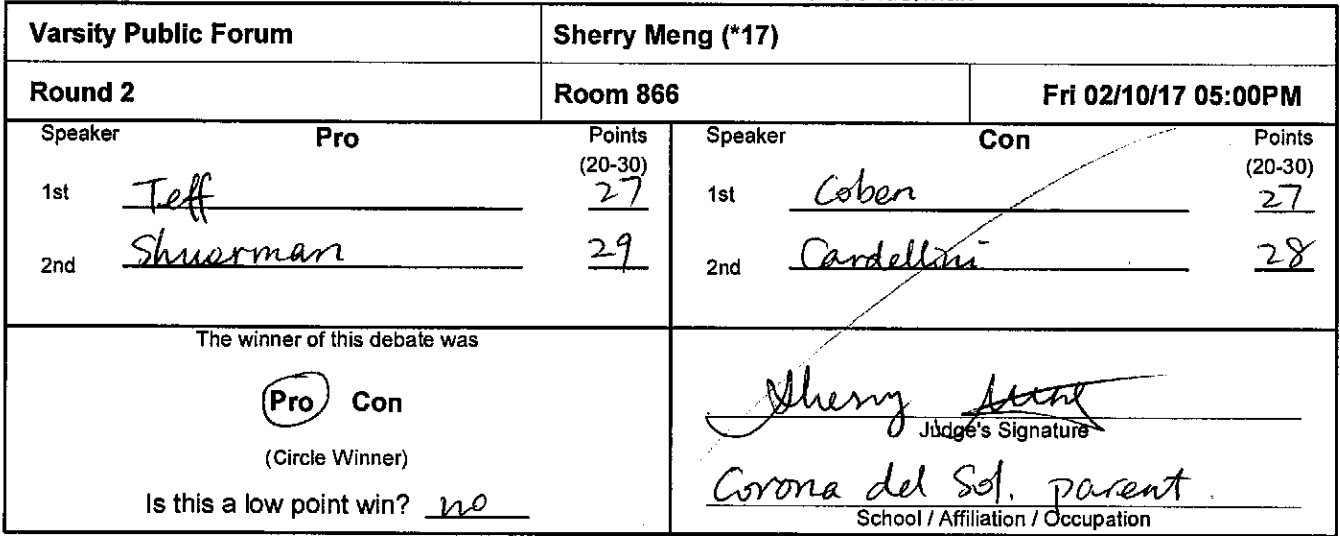 Varsity Public Forum Sherry Meng (*17)
Round 2 Room 866 Fri 02/10/17 05:00PM
Speaker Pro Points Speaker Con Points
(20-30) (20-30)
1st Teff 27 1st Coben 27
2nd Shuerman 29 2nd Cardellini 28
The winner of this debate was
Pro Con
(Circle Winner)
Is this a low point win? no
Sherry
Judge's Signature
Corona del Sol. parent.
School / Affiliation / Occupation